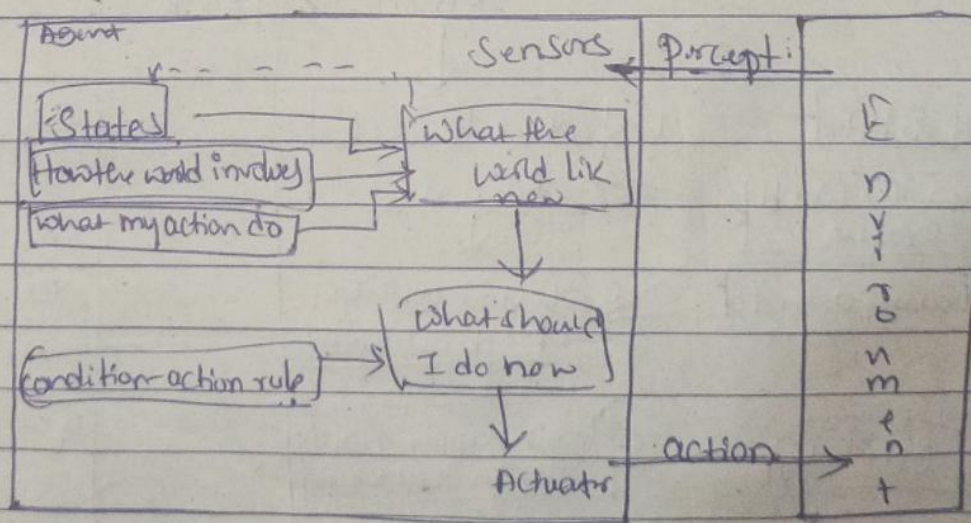 Agent
Sensors
Percepti
States
How the world involves
what my action do
what the
world lik
now
what should
I do now
condition-action rule
Actuator
action
Environment